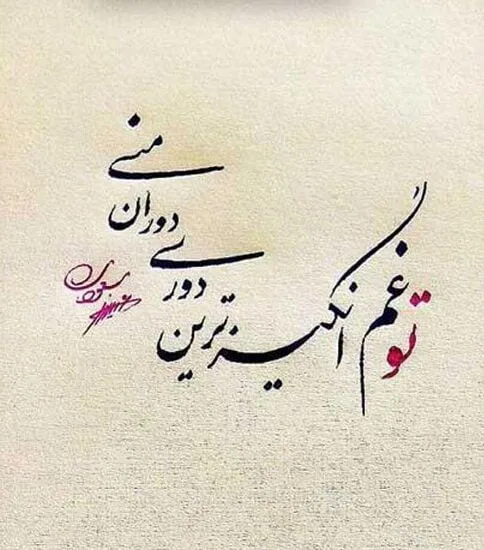 تو غم انگیزترین
دوری
دوران
منی